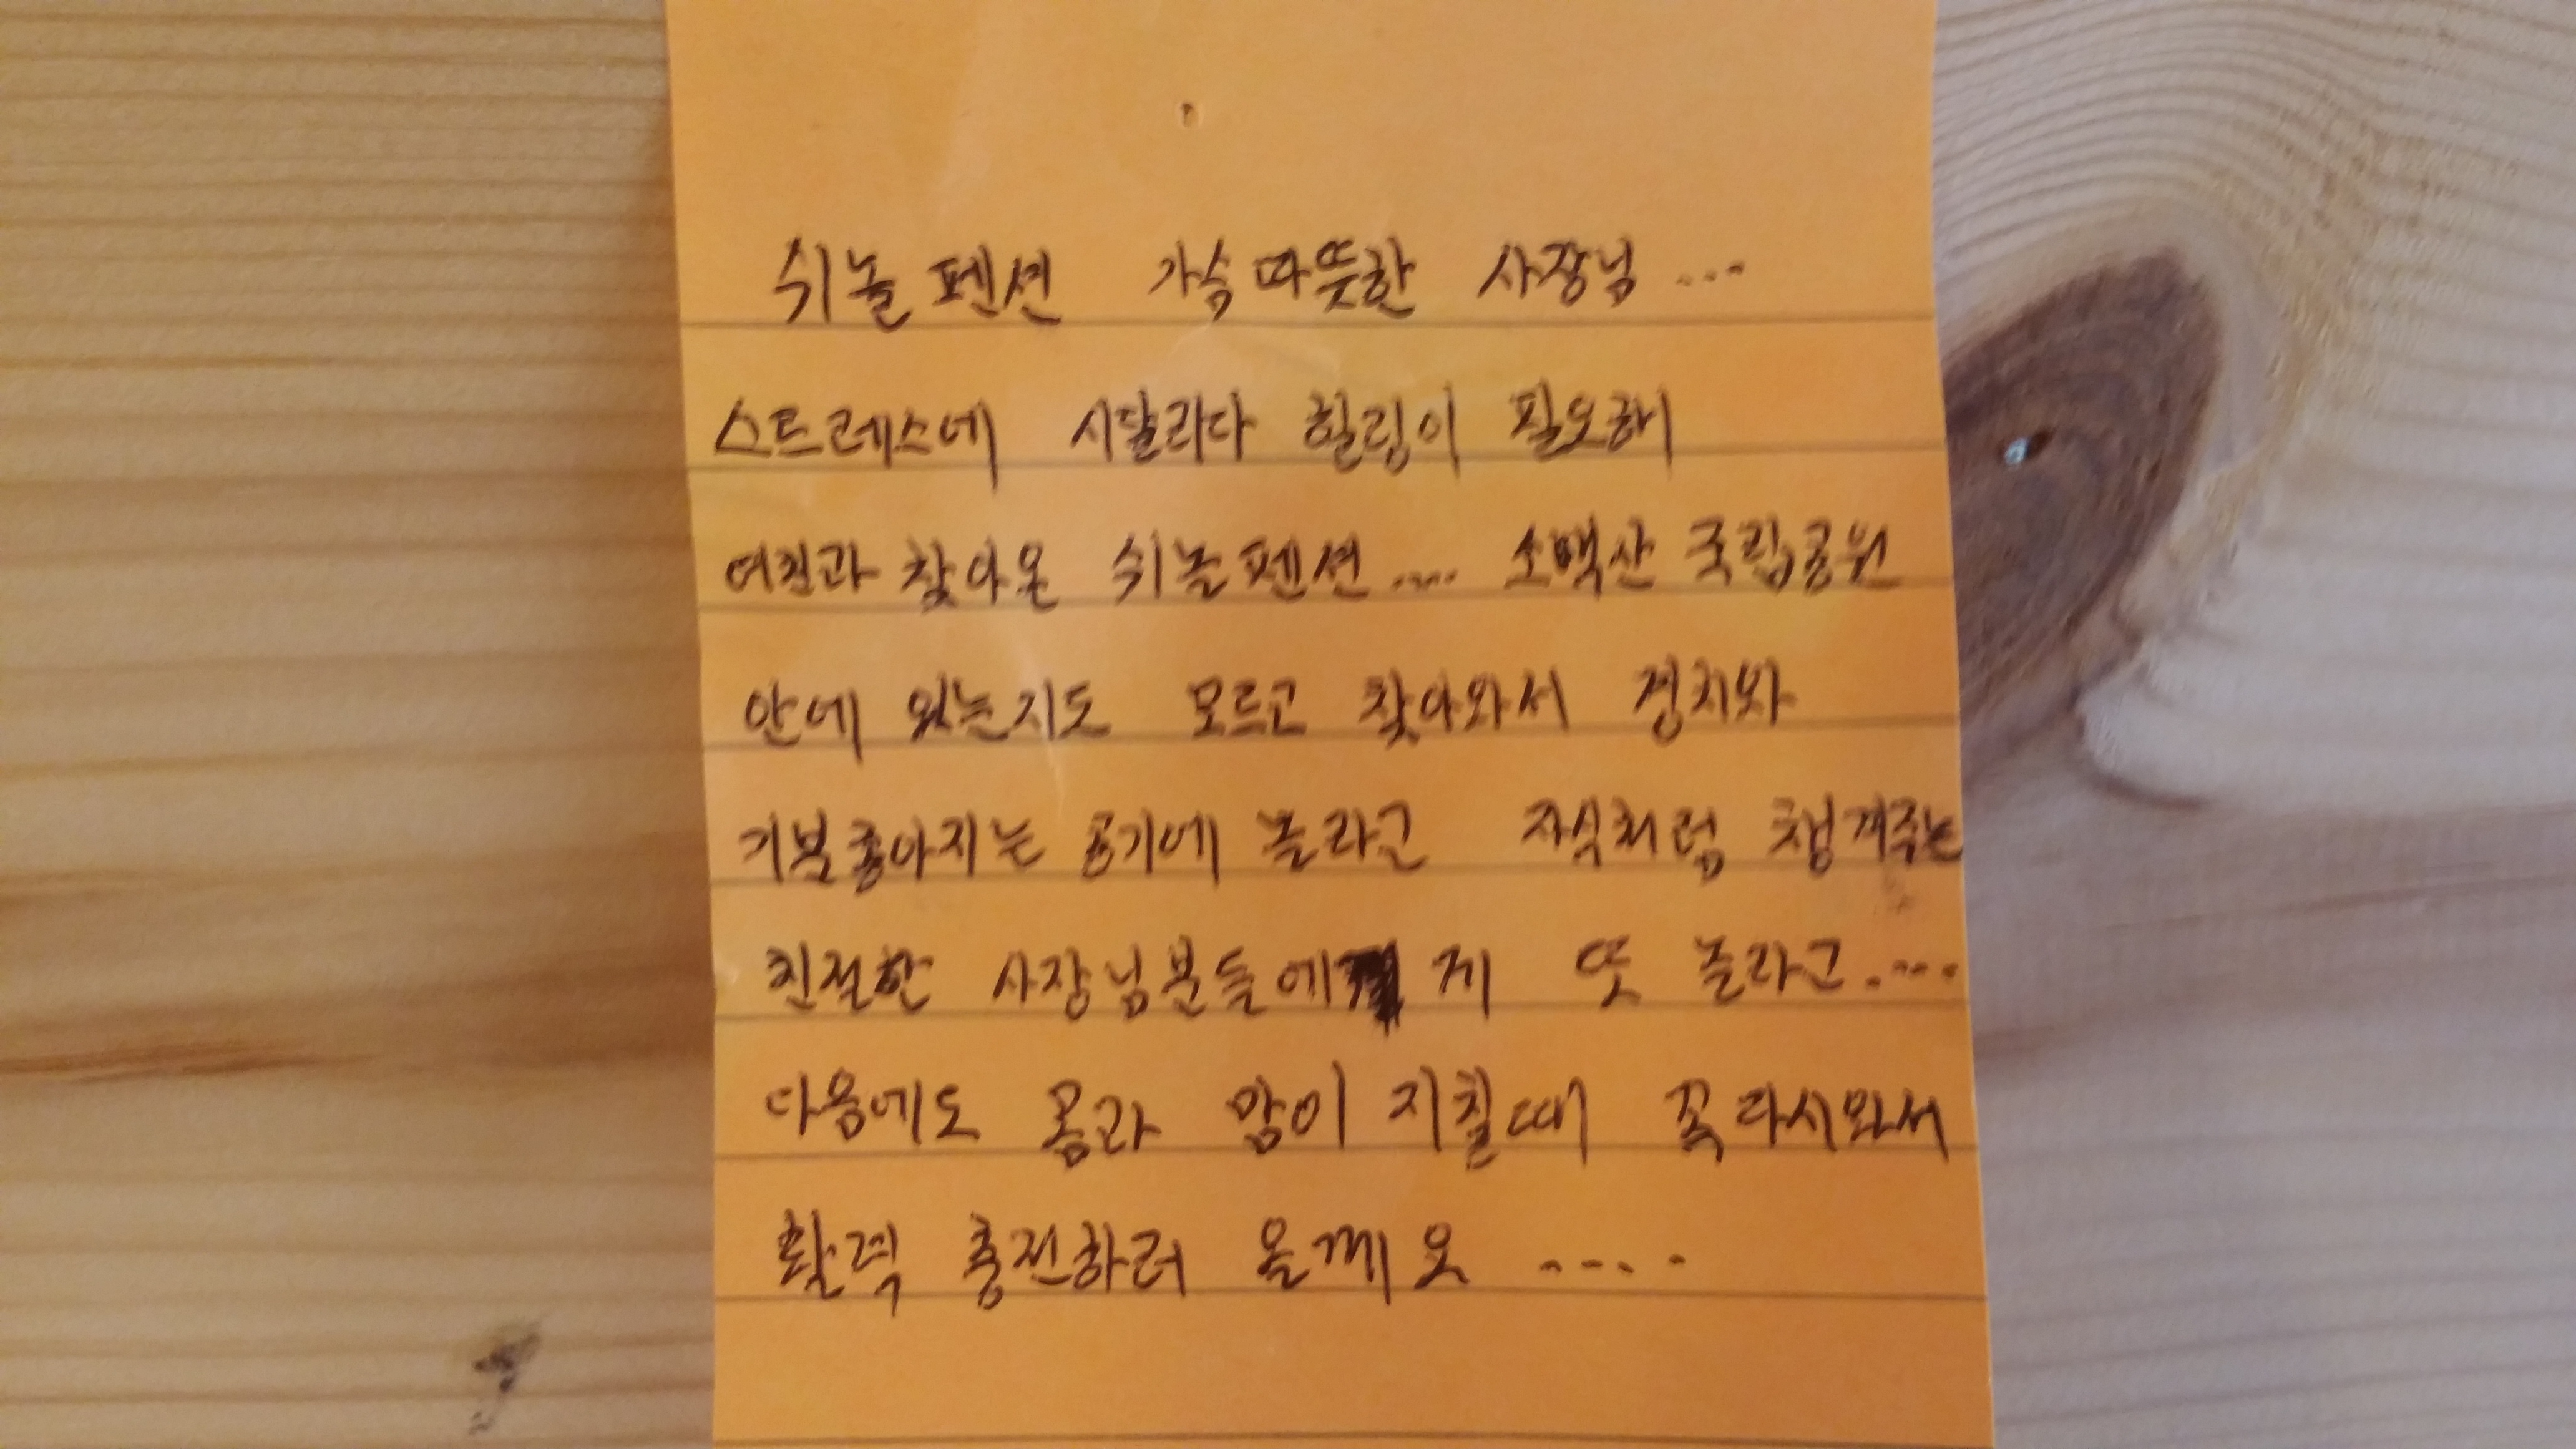 쉬놀펜션 가슴따뜻한 사장님 ...
스트레스에 시달리다 힐링이 필요해
여친과 찾아온 쉬놀펜션 .... 소백산 국립공원
안에 있는지도 모르고 찾아와서 경치와
기분좋아지는 공기에 놀라고 자식처럼 챙겨주는
친절한 사장님분들에 게 또 놀라고 ....
다음에도 몸과 맘이 지칠때 꼭다시와서
활력 충전하러 올께요 ....